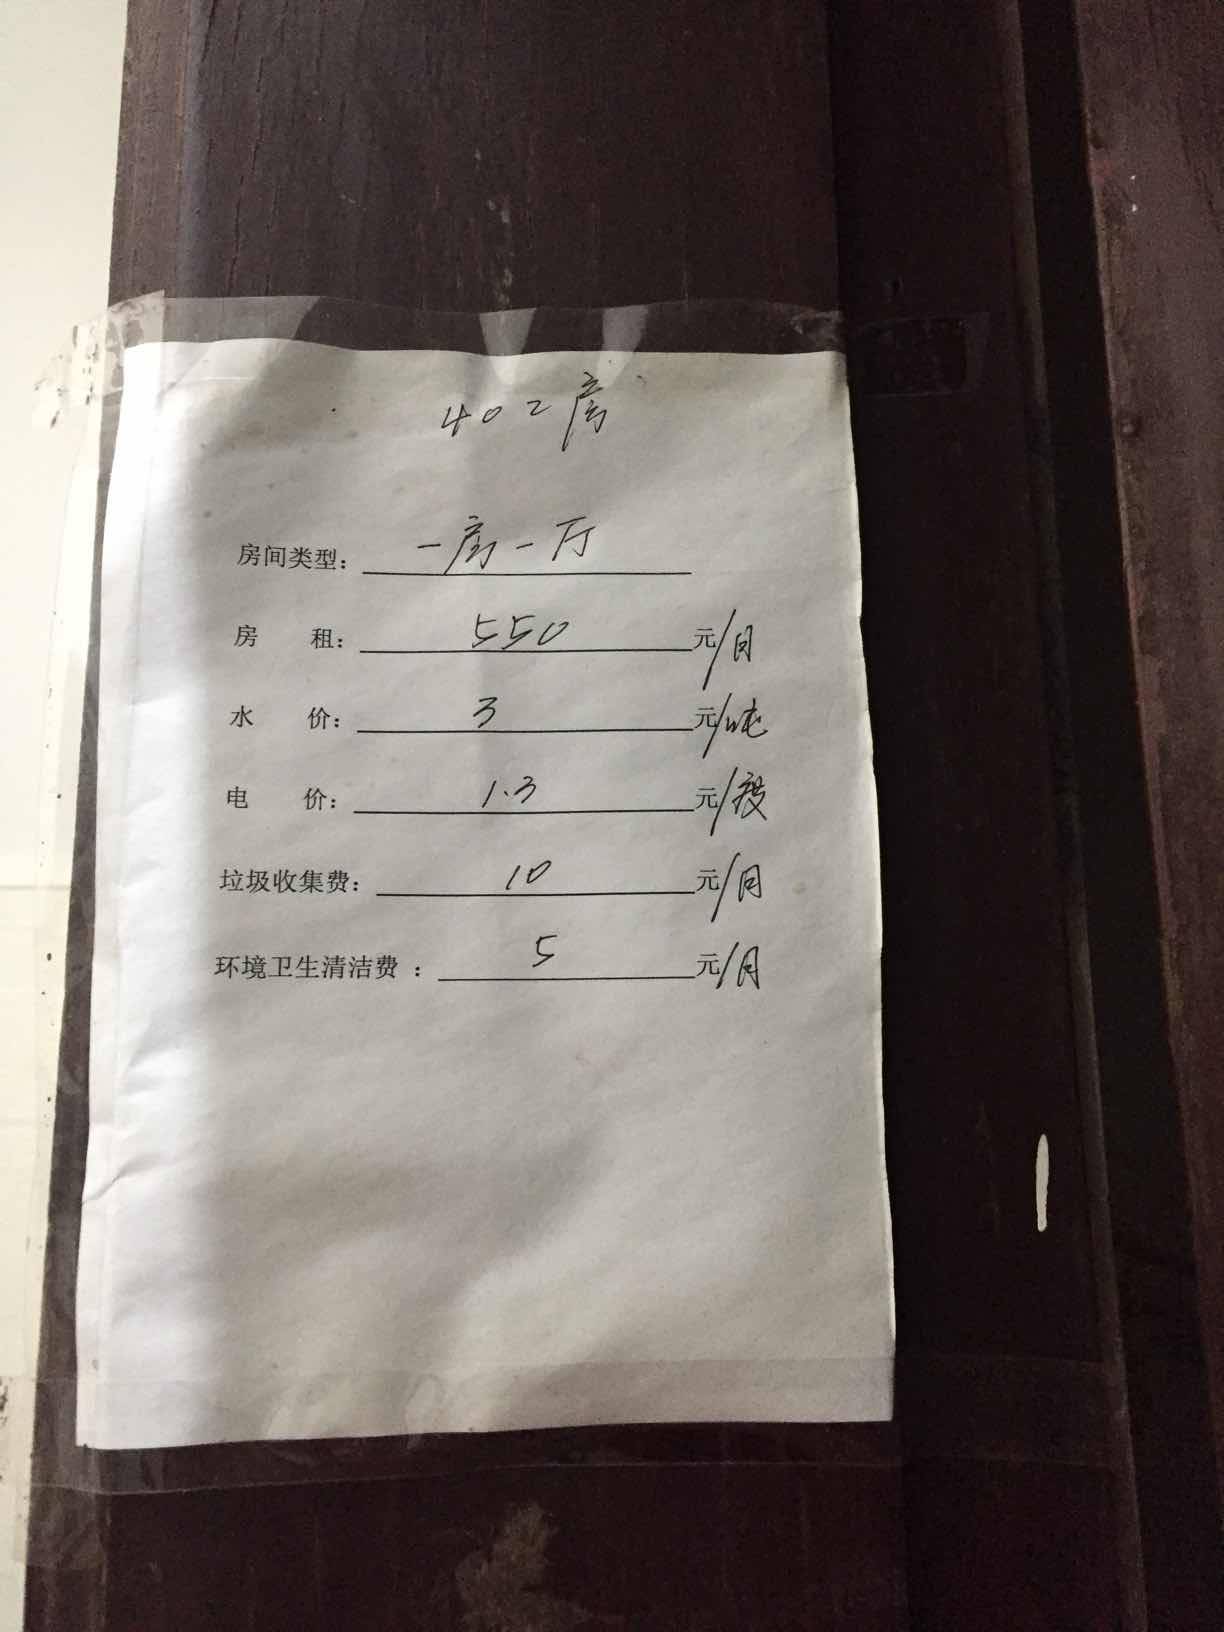 402房
房间类型：一房一厅
房租：550元/月
水价：3元/吨
电价：1.3元/度
垃圾收集费：10元/月
环境卫生清洁费：5元/月